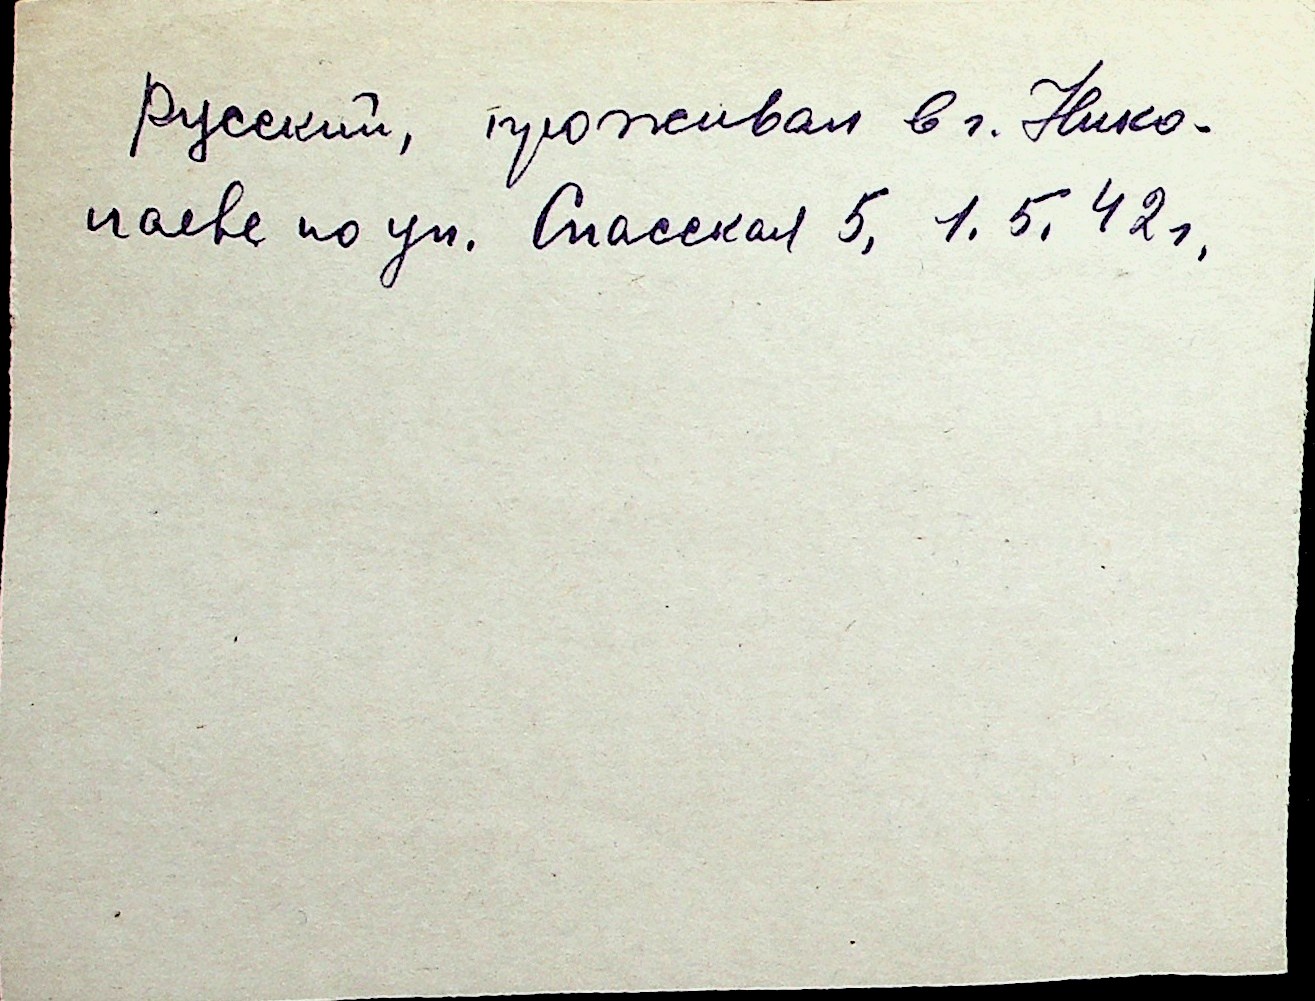 Русский, проживал в г. Нико-
лаеве по ул. Спасская 5, 1.5.42г.